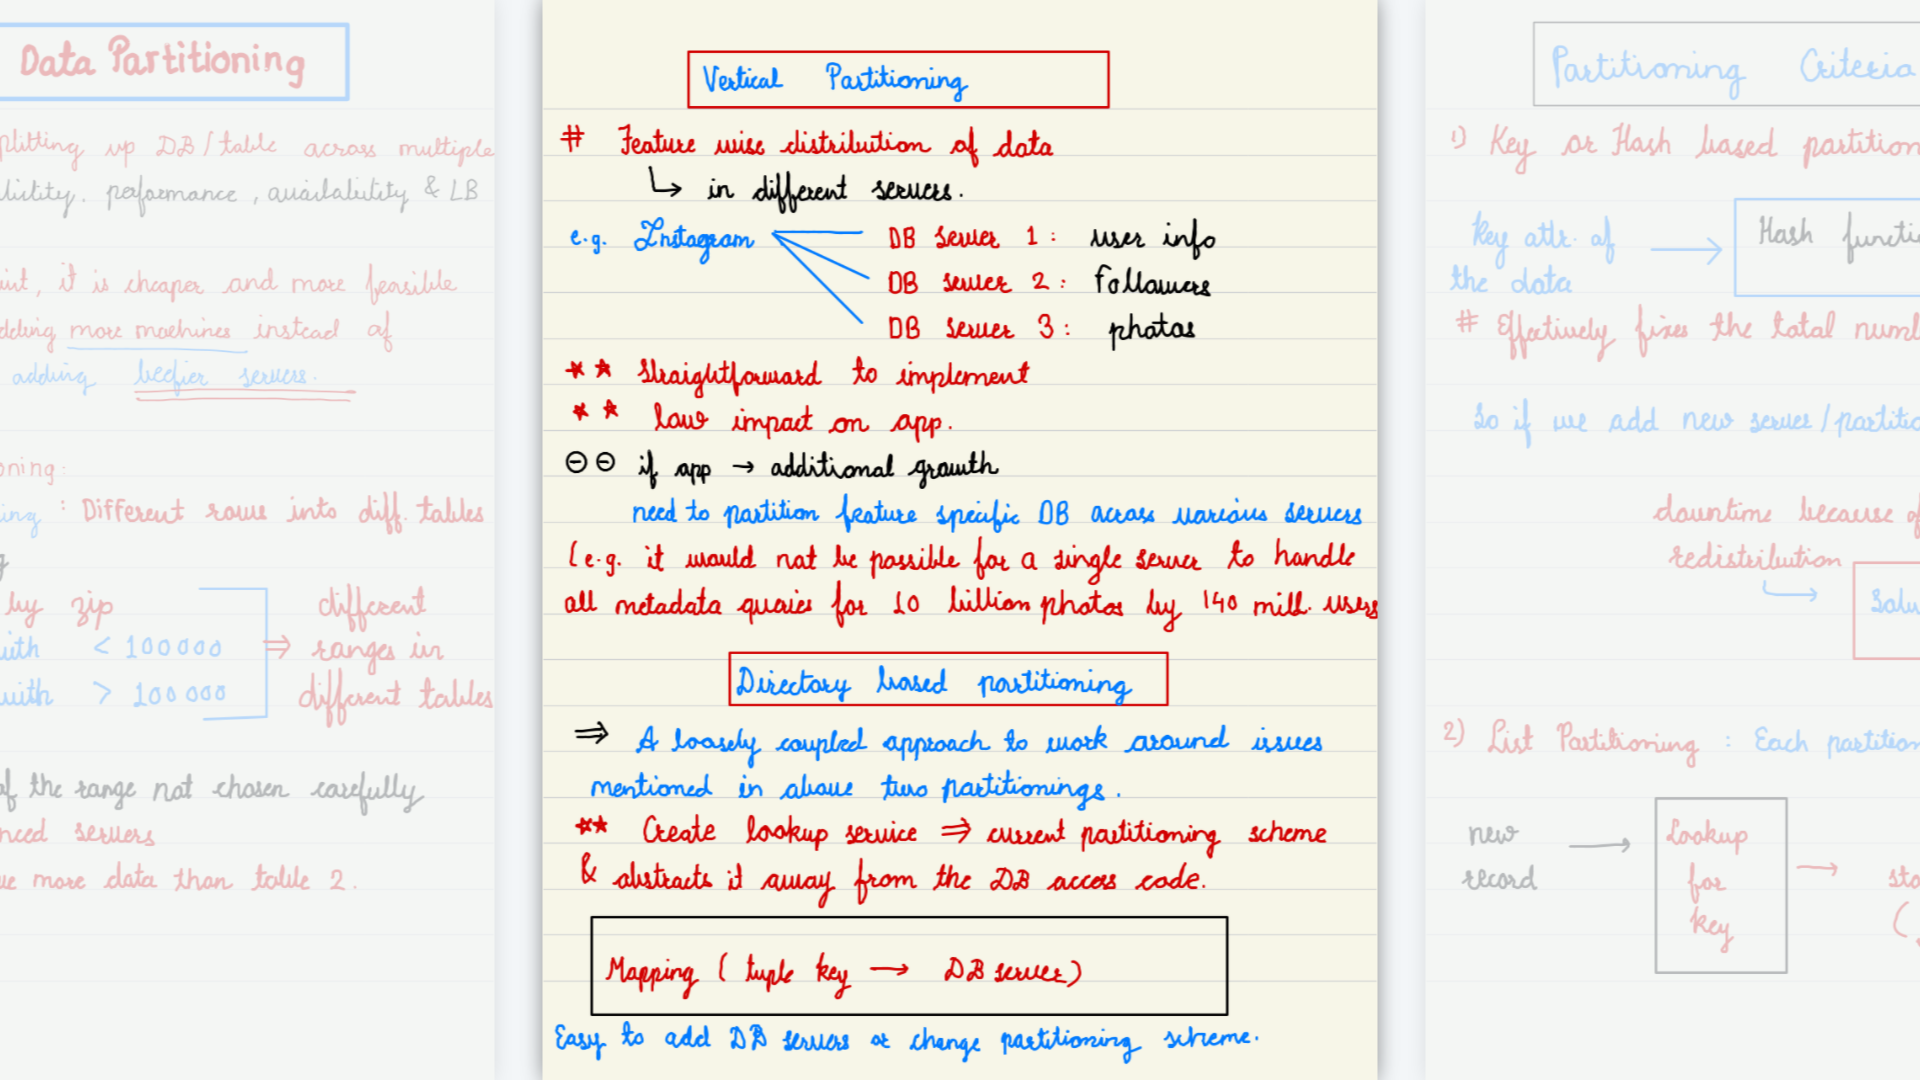 Data Partitioning
plitting up DB/table across multiple
performance, availability & LB
it is cheaper and more feasible
more machines instead of
adding beefier servers.
oning:
ing : Different rows into diff. tables
by zip
with < 100000
with > 100 000
⇒ different
ranges in
different tables
of the range not chosen carefully
nced servers
ve more data than table 2.
Vertical Partitioning
# Feature wise distribution of data
↳ in different servers.
e.g. Instagram
DB server 1: user info
DB server 2: followers
DB server 3: photos
** Straightforward to implement
** low impact on app.
⊖⊖ if app → additional growth
need to partition feature specific DB across various servers
(e.g. it would not be possible for a single server to handle
all metadata queries for 10 billion photos by 140 mill. users
Directory based partitioning
⇒ A loosely coupled approach to work around issues
mentioned in above two partitionings.
** Create lookup service ⇒ current partitioning scheme
& abstracts it away from the DB access code.
Mapping (tuple key → DB server)
Easy to add DB servers or change partitioning scheme.
Partitioning Criteria
1) Key or Hash based partition
key attr. of
the data
→ Hash functi
# Effectively fixes the total num
So if we add new server/partitio
downtime because of
redistribution
↳ Solu
2) List Partitioning : Each partition
new
record
→ Lookup
for
key
→ sto